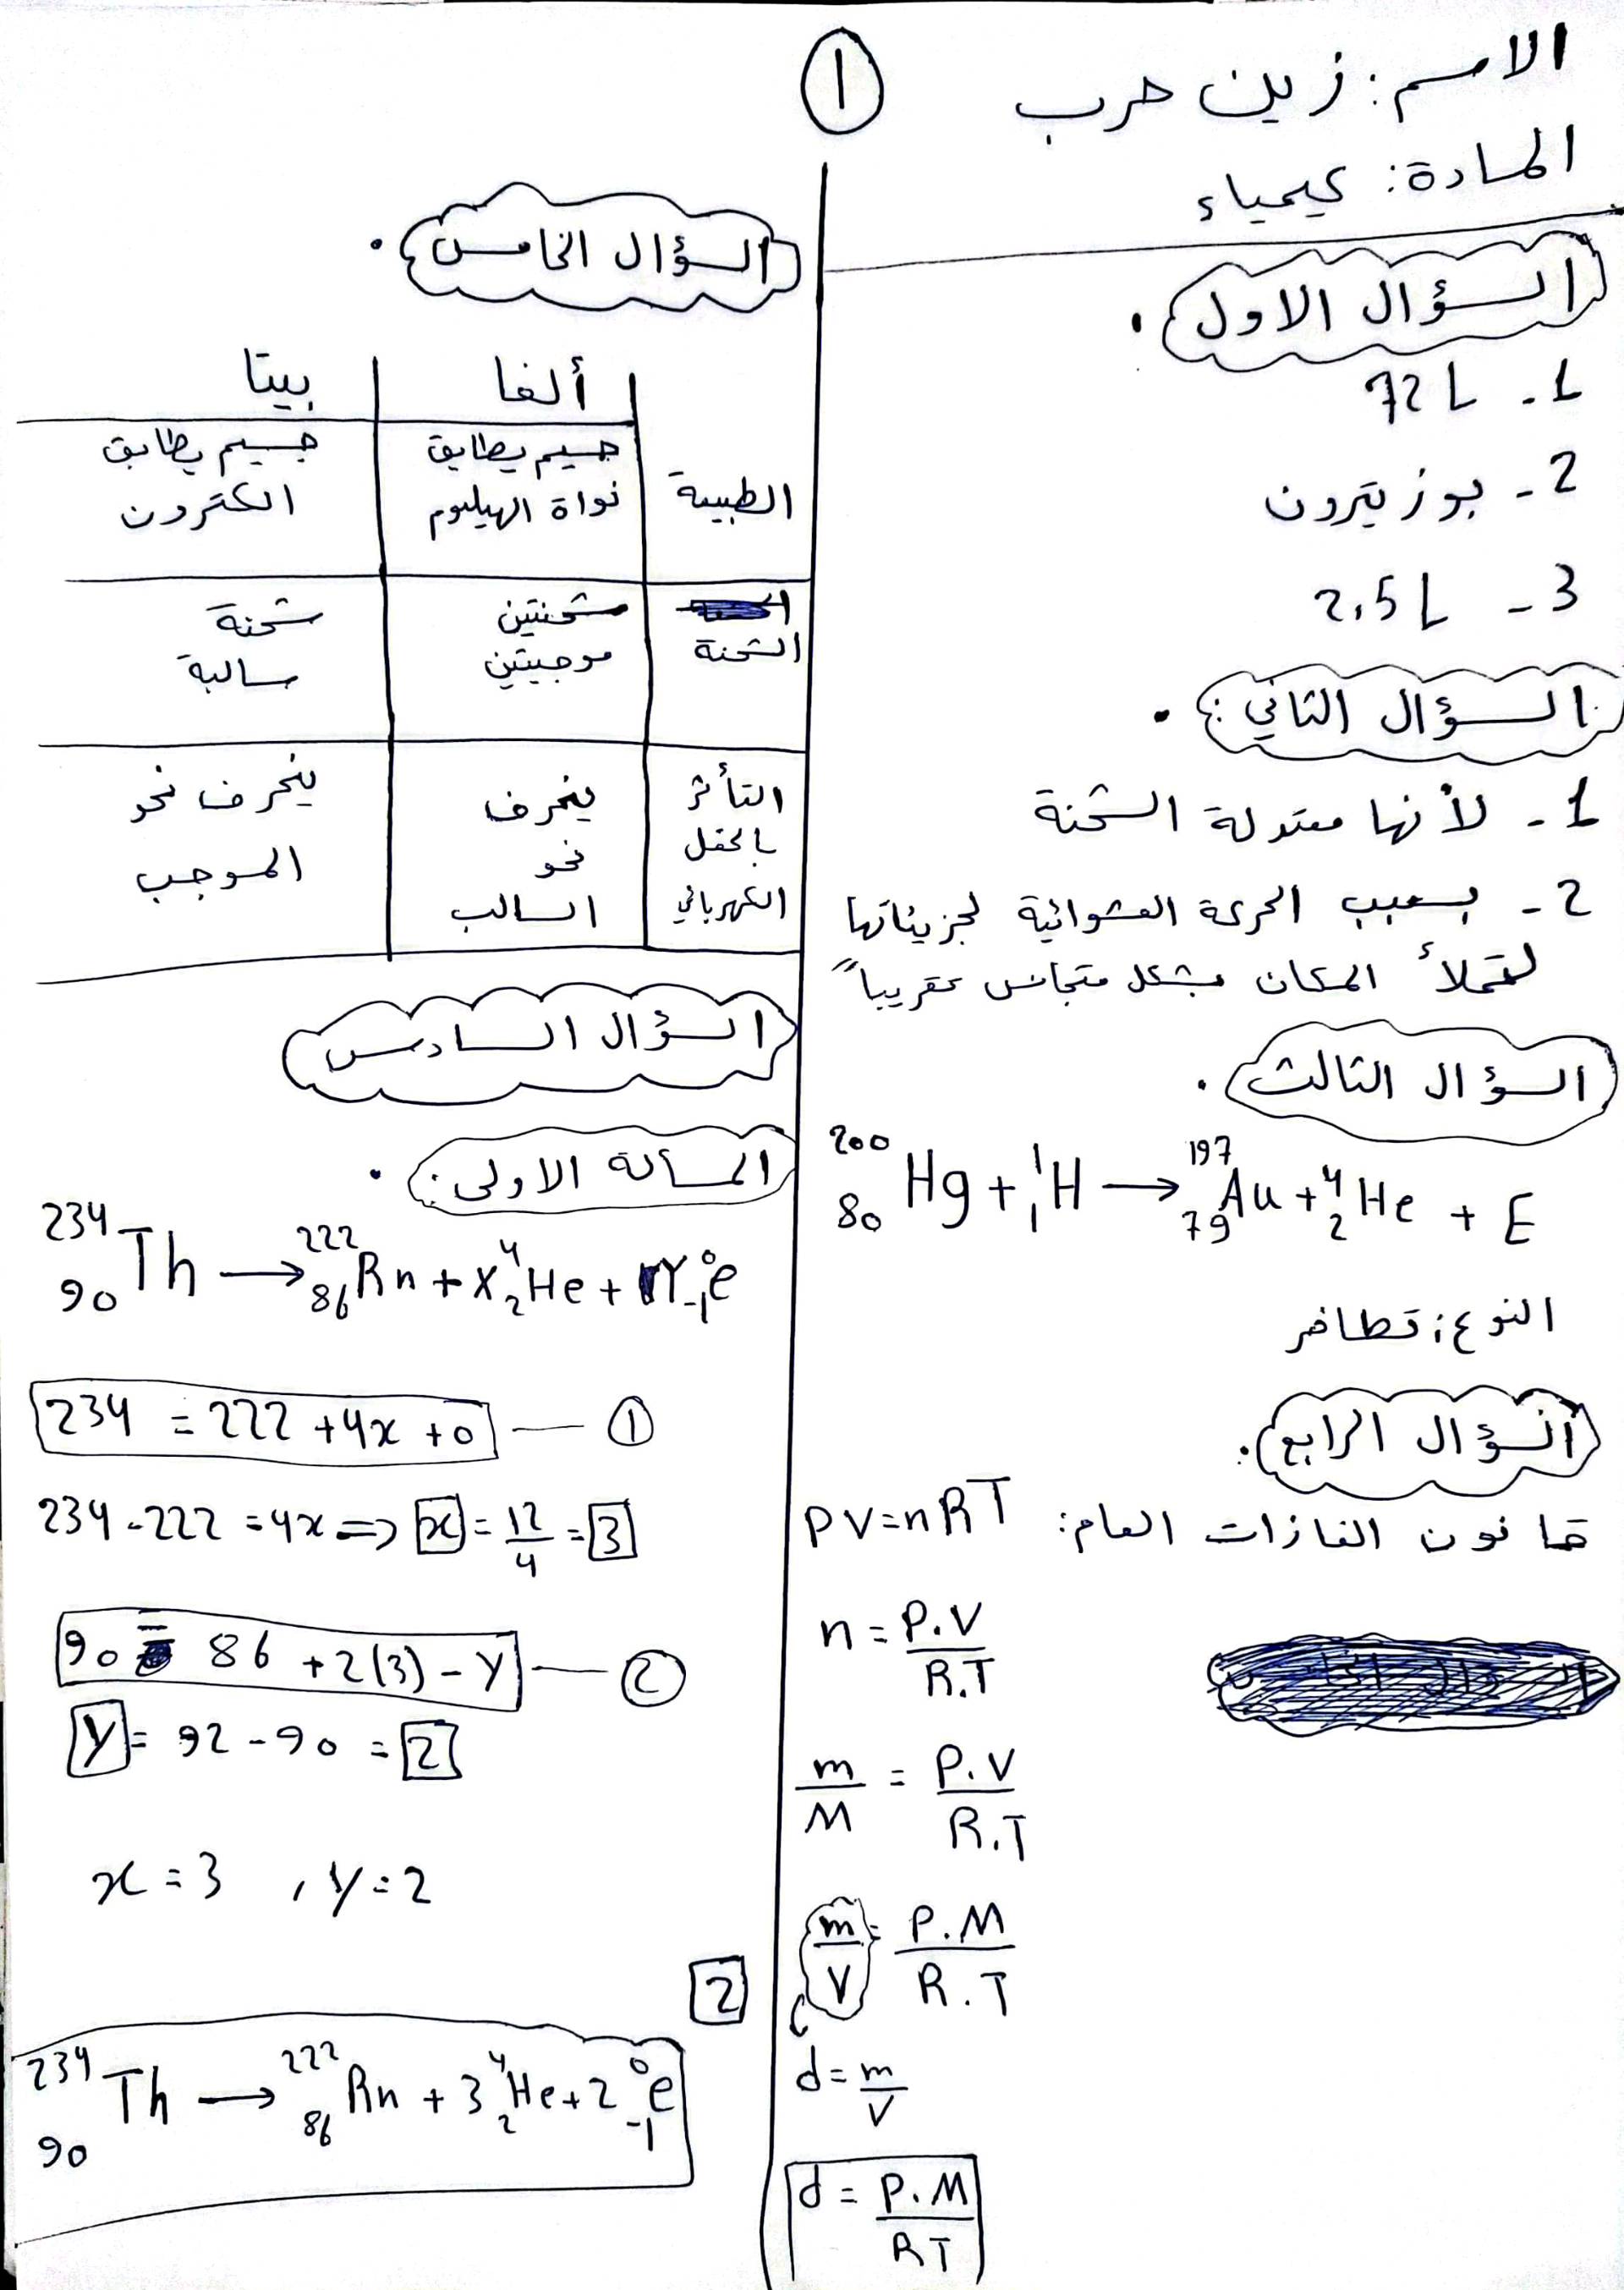 1
الاسم: زين حرب
المادة: كيمياء
السؤال الاول.
1- 72 L
2- بوزيترون
3- 2,5 L
السؤال الثاني:.
1- لأنها معتدلة الشحنة
2- بسبب الحركة العشوائية لجزيئاتها
لتملأ المكان بشكل متجانس تقريباً
السؤال الثالث.
²⁰⁰₈₀Hg + ¹₁H → ¹⁹⁷₇₉Au + ⁴₂He + E
النوع: تطافر
السؤال الرابع.
قانون الغازات العام: PV=nRT
n = P.V / R.T
m / M = P.V / R.T
m / V = P.M / R.T
d = m / V
d = P.M / RT
السؤال الخامس.
ألفا بيتا
الطبيعة جسيم يطابق نواة الهيليوم جسيم يطابق الكترون
الشحنة شحنتين موجبتين شحنة سالبة
التأثر بالحقل الكهربائي ينحرف نحو السالب ينحرف نحو الموجب
السؤال السادس
المسألة الاولى:.
²³⁴₉₀Th → ²²²₈₆Rn + X⁴₂He + Y⁰₋₁e
234 = 222 + 4x + 0 — ①
234 - 222 = 4x => x = 12/4 = 3
90 = 86 + 2(3) - y — ②
y = 92 - 90 = 2
x = 3 , y = 2
2
²³⁴₉₀Th → ²²²₈₆Rn + 3⁴₂He + 2⁰₋₁e